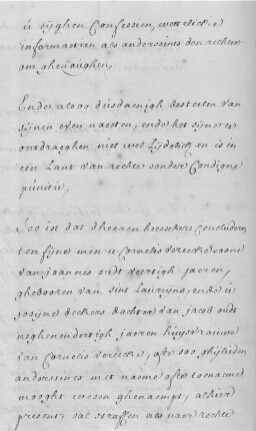 u eijghen Confessien, wettelicke
informatien als anderseints den rechte
om ghenoeghen,
Ende alsoo dusdaenigh bestelen van
sijnen even naesten, ende het sijne te
ontdraghen niet wel lijdelick en is in
een Lant van rechte sonder Condigne
punitie,
Soo ist dat d'heeren heesschers concluderen
ten fijne men u Cornelis vereecke soone
van joannes oudt veertigh jaeren,
ghebooren van sint Laureyns, ende u
josijne deckers dochter van jacob oudt
neghenendertigh jaeren huijsvrauwe
van Cornelis vereecke, ofte soo ghijlieden
andersints met naeme ofte toenaeme
mooght wesen ghenaempt, alhier
present, sal straffen als naer rechte